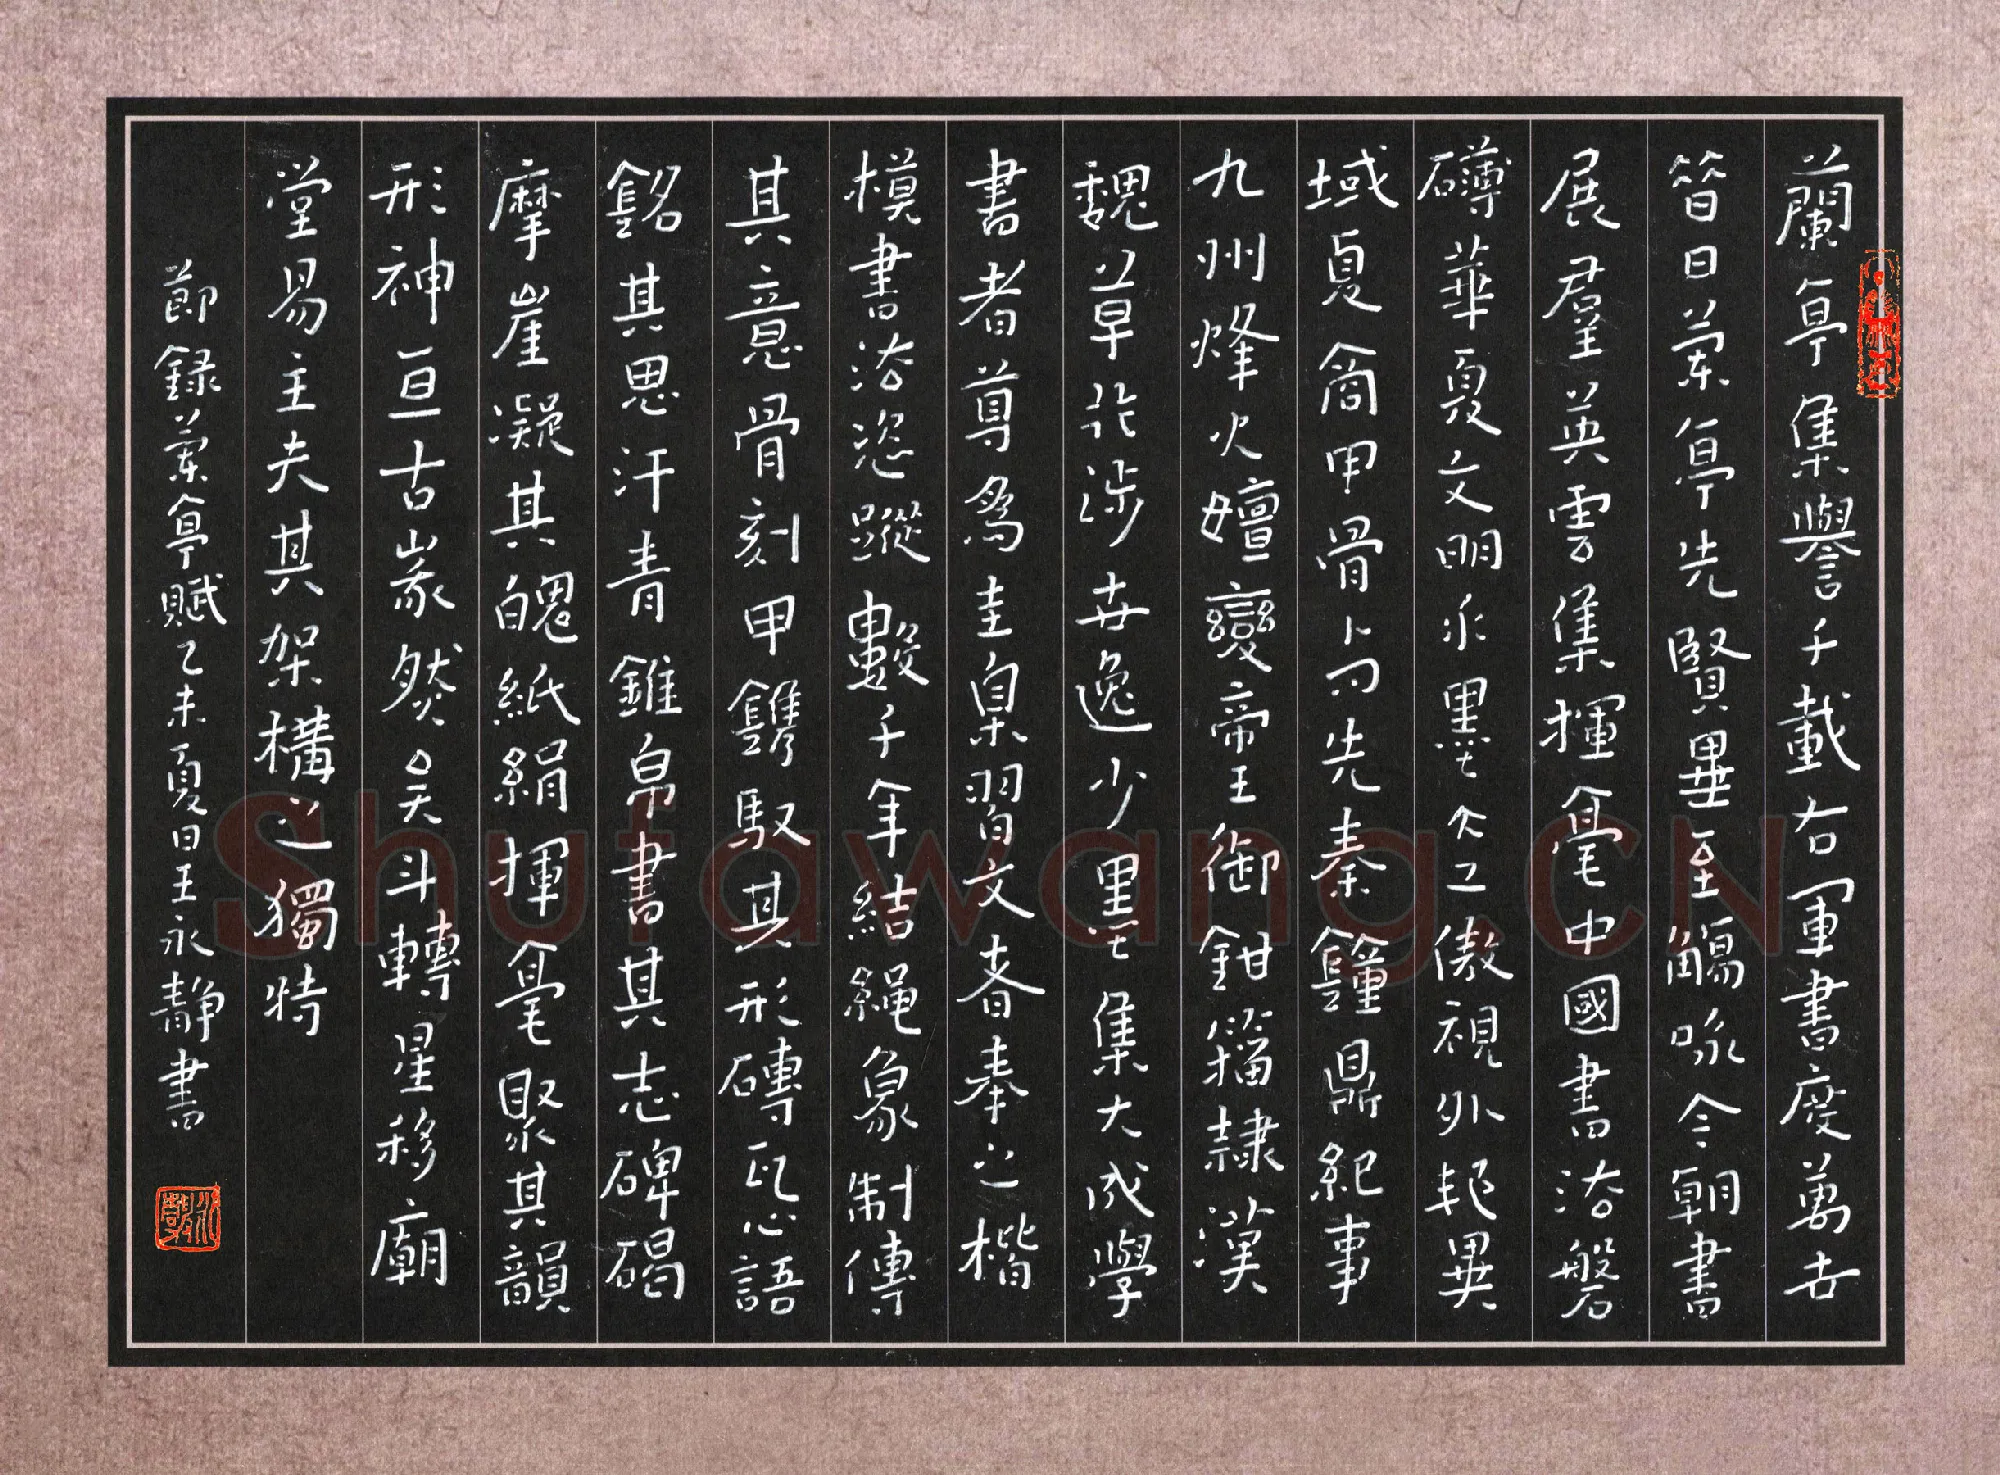 蘭亭集譽千載右軍書度萬古
昝日蘭亭先賢畢至觴咏今朝書
展群英雲集揮毫中國書法磐
礴華夏文明水墨大工傲視外邦異
域夏商甲骨卜問先秦鐘鼎紀事
九州烽火嬗變帝王御鉗籀隸漢
魏草行涉世逸少墨集大成學
書者尊為圭臬習文者奉之楷
模書法恣蹤數千年結繩象制傳
其意骨刻甲鐫馭其形磚瓦心語
銘其思汗青錐帛書其志碑碣
摩崖凝其魄紙絹揮毫聚其韻
形神亘古家然吴斗轉星移廟
堂易主夫其架構之獨特
節録蘭亭賦乙未夏日王永靜書
Shufawang.CN